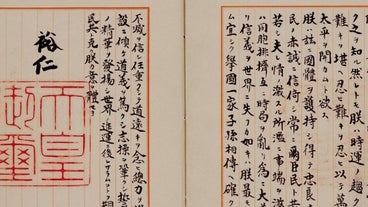 ク之ヲ知ル然レトモ朕ハ時運ノ趨
難キヲ堪ヘ忍ヒ難キヲ忍ヒ以テ萬
太平ヲ開カムト欲ス
朕ハ茲ニ國體ヲ護持シ得テ忠良
民ノ赤誠ニ信倚シ常ニ爾臣民ト共
若シ夫レ情ノ激スル所濫ニ事端ヲ滋
ハ同胞排擠互ニ時局ヲ亂リ為ニ大
リ信義ヲ世界ニ失フカ如キハ朕最モ
ム宜シク擧國一家子孫相傳ヘ確ク
不滅ヲ信シ任重クシテ道遠キヲ念ヒ總力ヲ
設ニ傾ケ道義ヲ篤クシ志操ヲ鞏クシ誓
ノ精華ヲ發揚シ世界ノ進運ニ後レサラムコトヲ期
民其レ克ク朕カ意ヲ體セヨ
裕仁
天皇
御璽